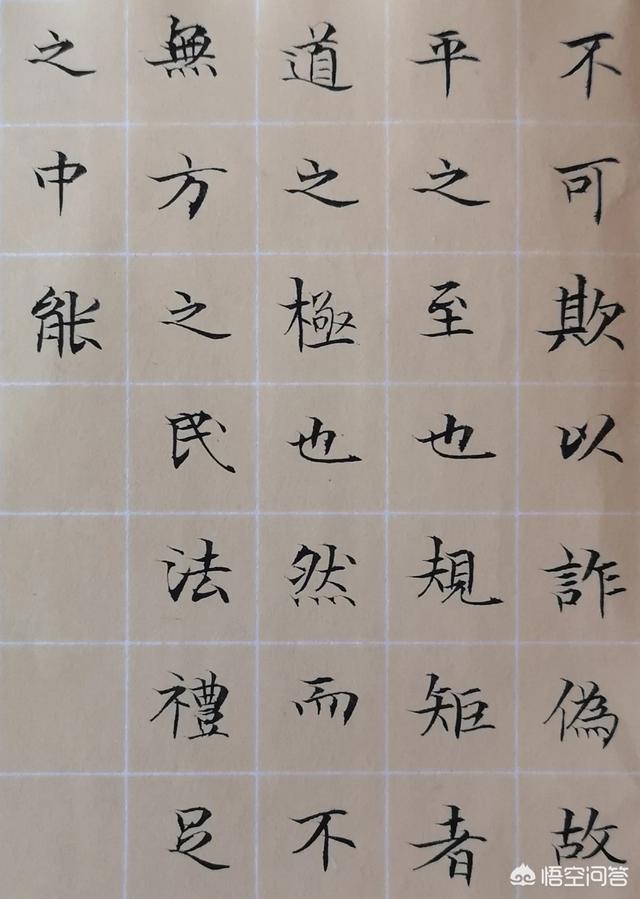 不可欺以詐偽故
平之至也規矩者
道之極也然而不
無方之民法禮足
之中能
悟空问答